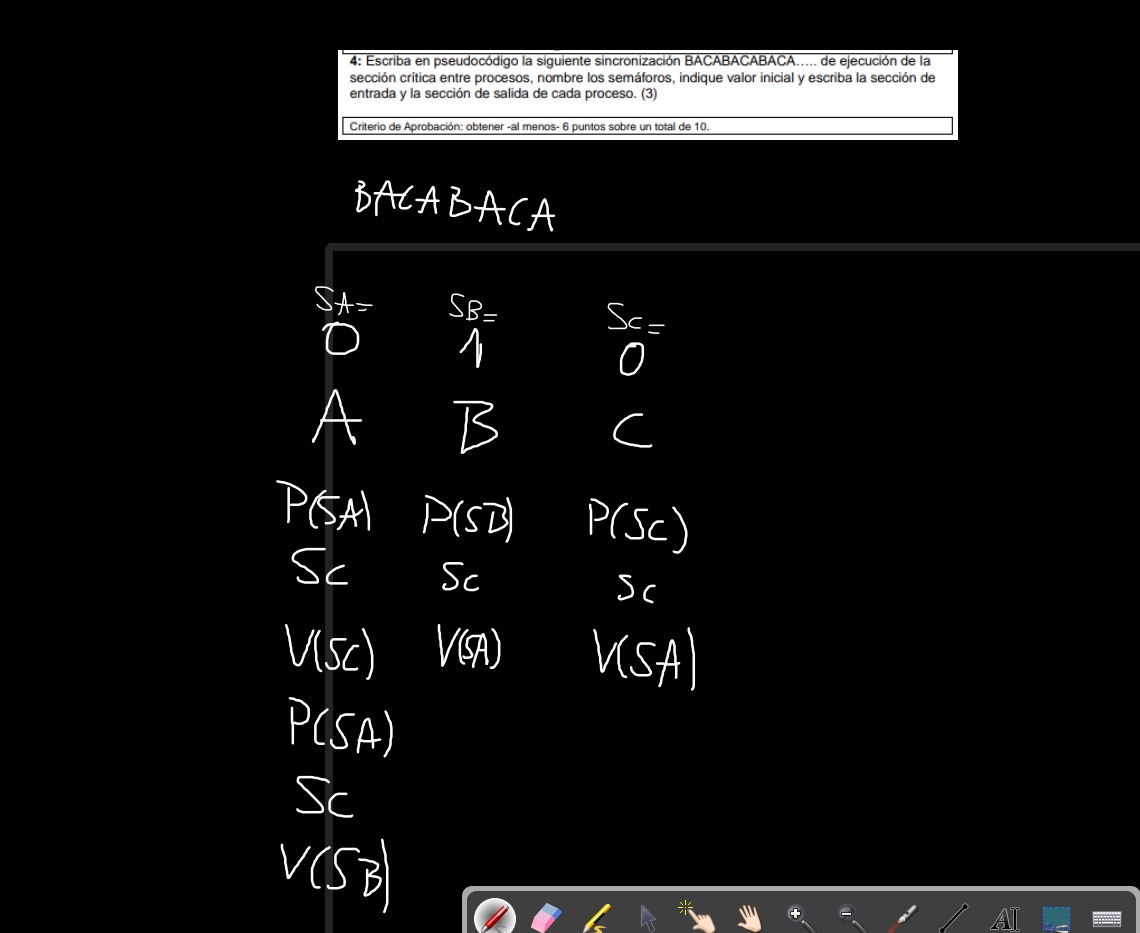 4: Escriba en pseudocódigo la siguiente sincronización BACABACABACA..... de ejecución de la
sección crítica entre procesos, nombre los semáforos, indique valor inicial y escriba la sección de
entrada y la sección de salida de cada proceso. (3)
Criterio de Aprobación: obtener -al menos- 6 puntos sobre un total de 10.
BACABACA
SA= SB= SC=
0 1 0
A B C
P(SA) P(SB) P(SC)
SC SC SC
V(SC) V(SA) V(SA)
P(SA)
SC
V(SB)
AI